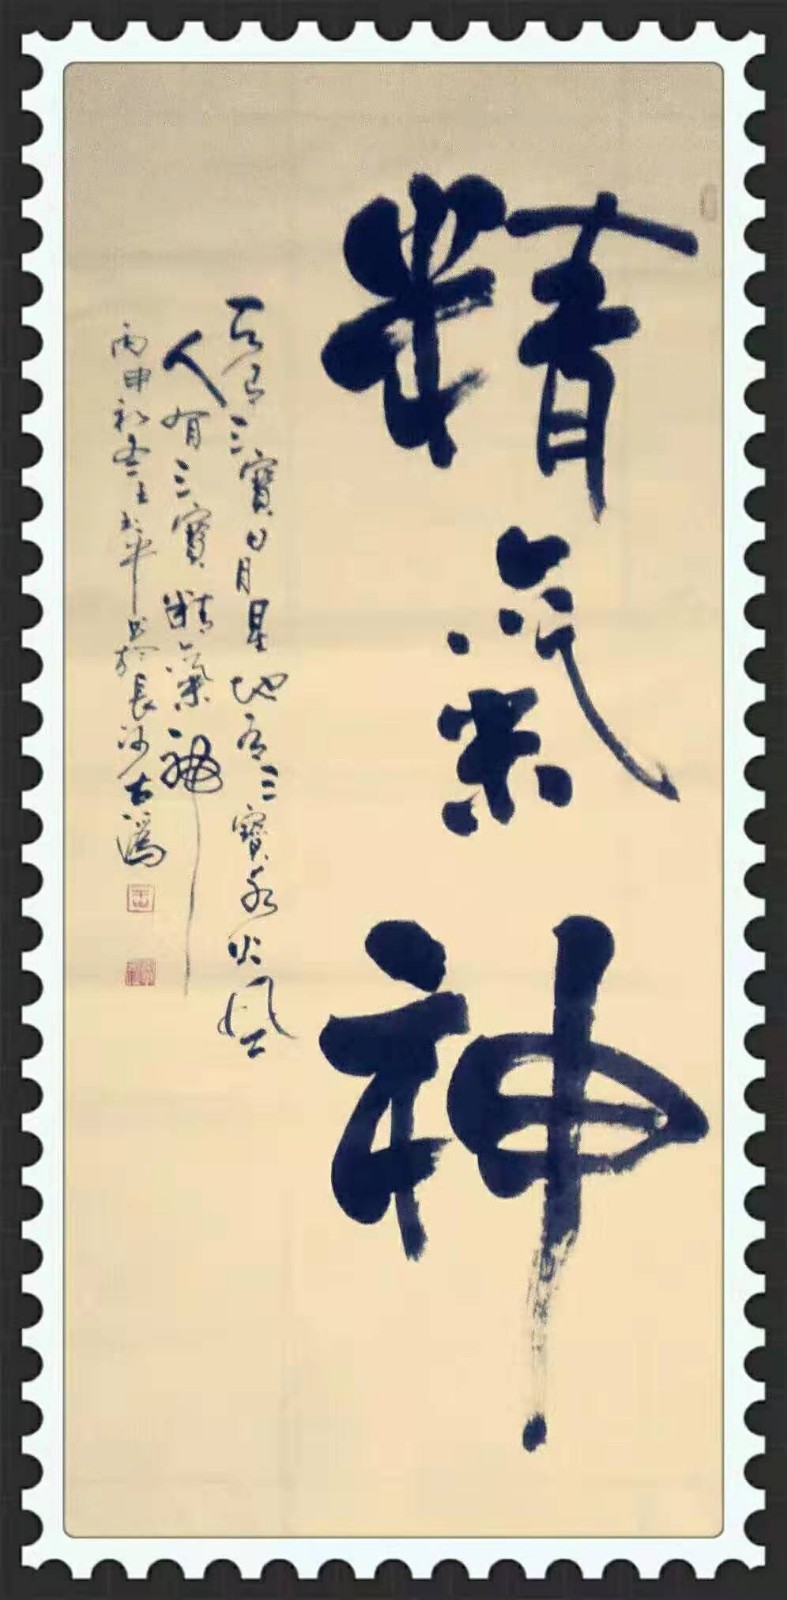 精氣神
天有三寶日月星地有三寶水火風
人有三寶精氣神
丙申初冬王書於長沙古潙